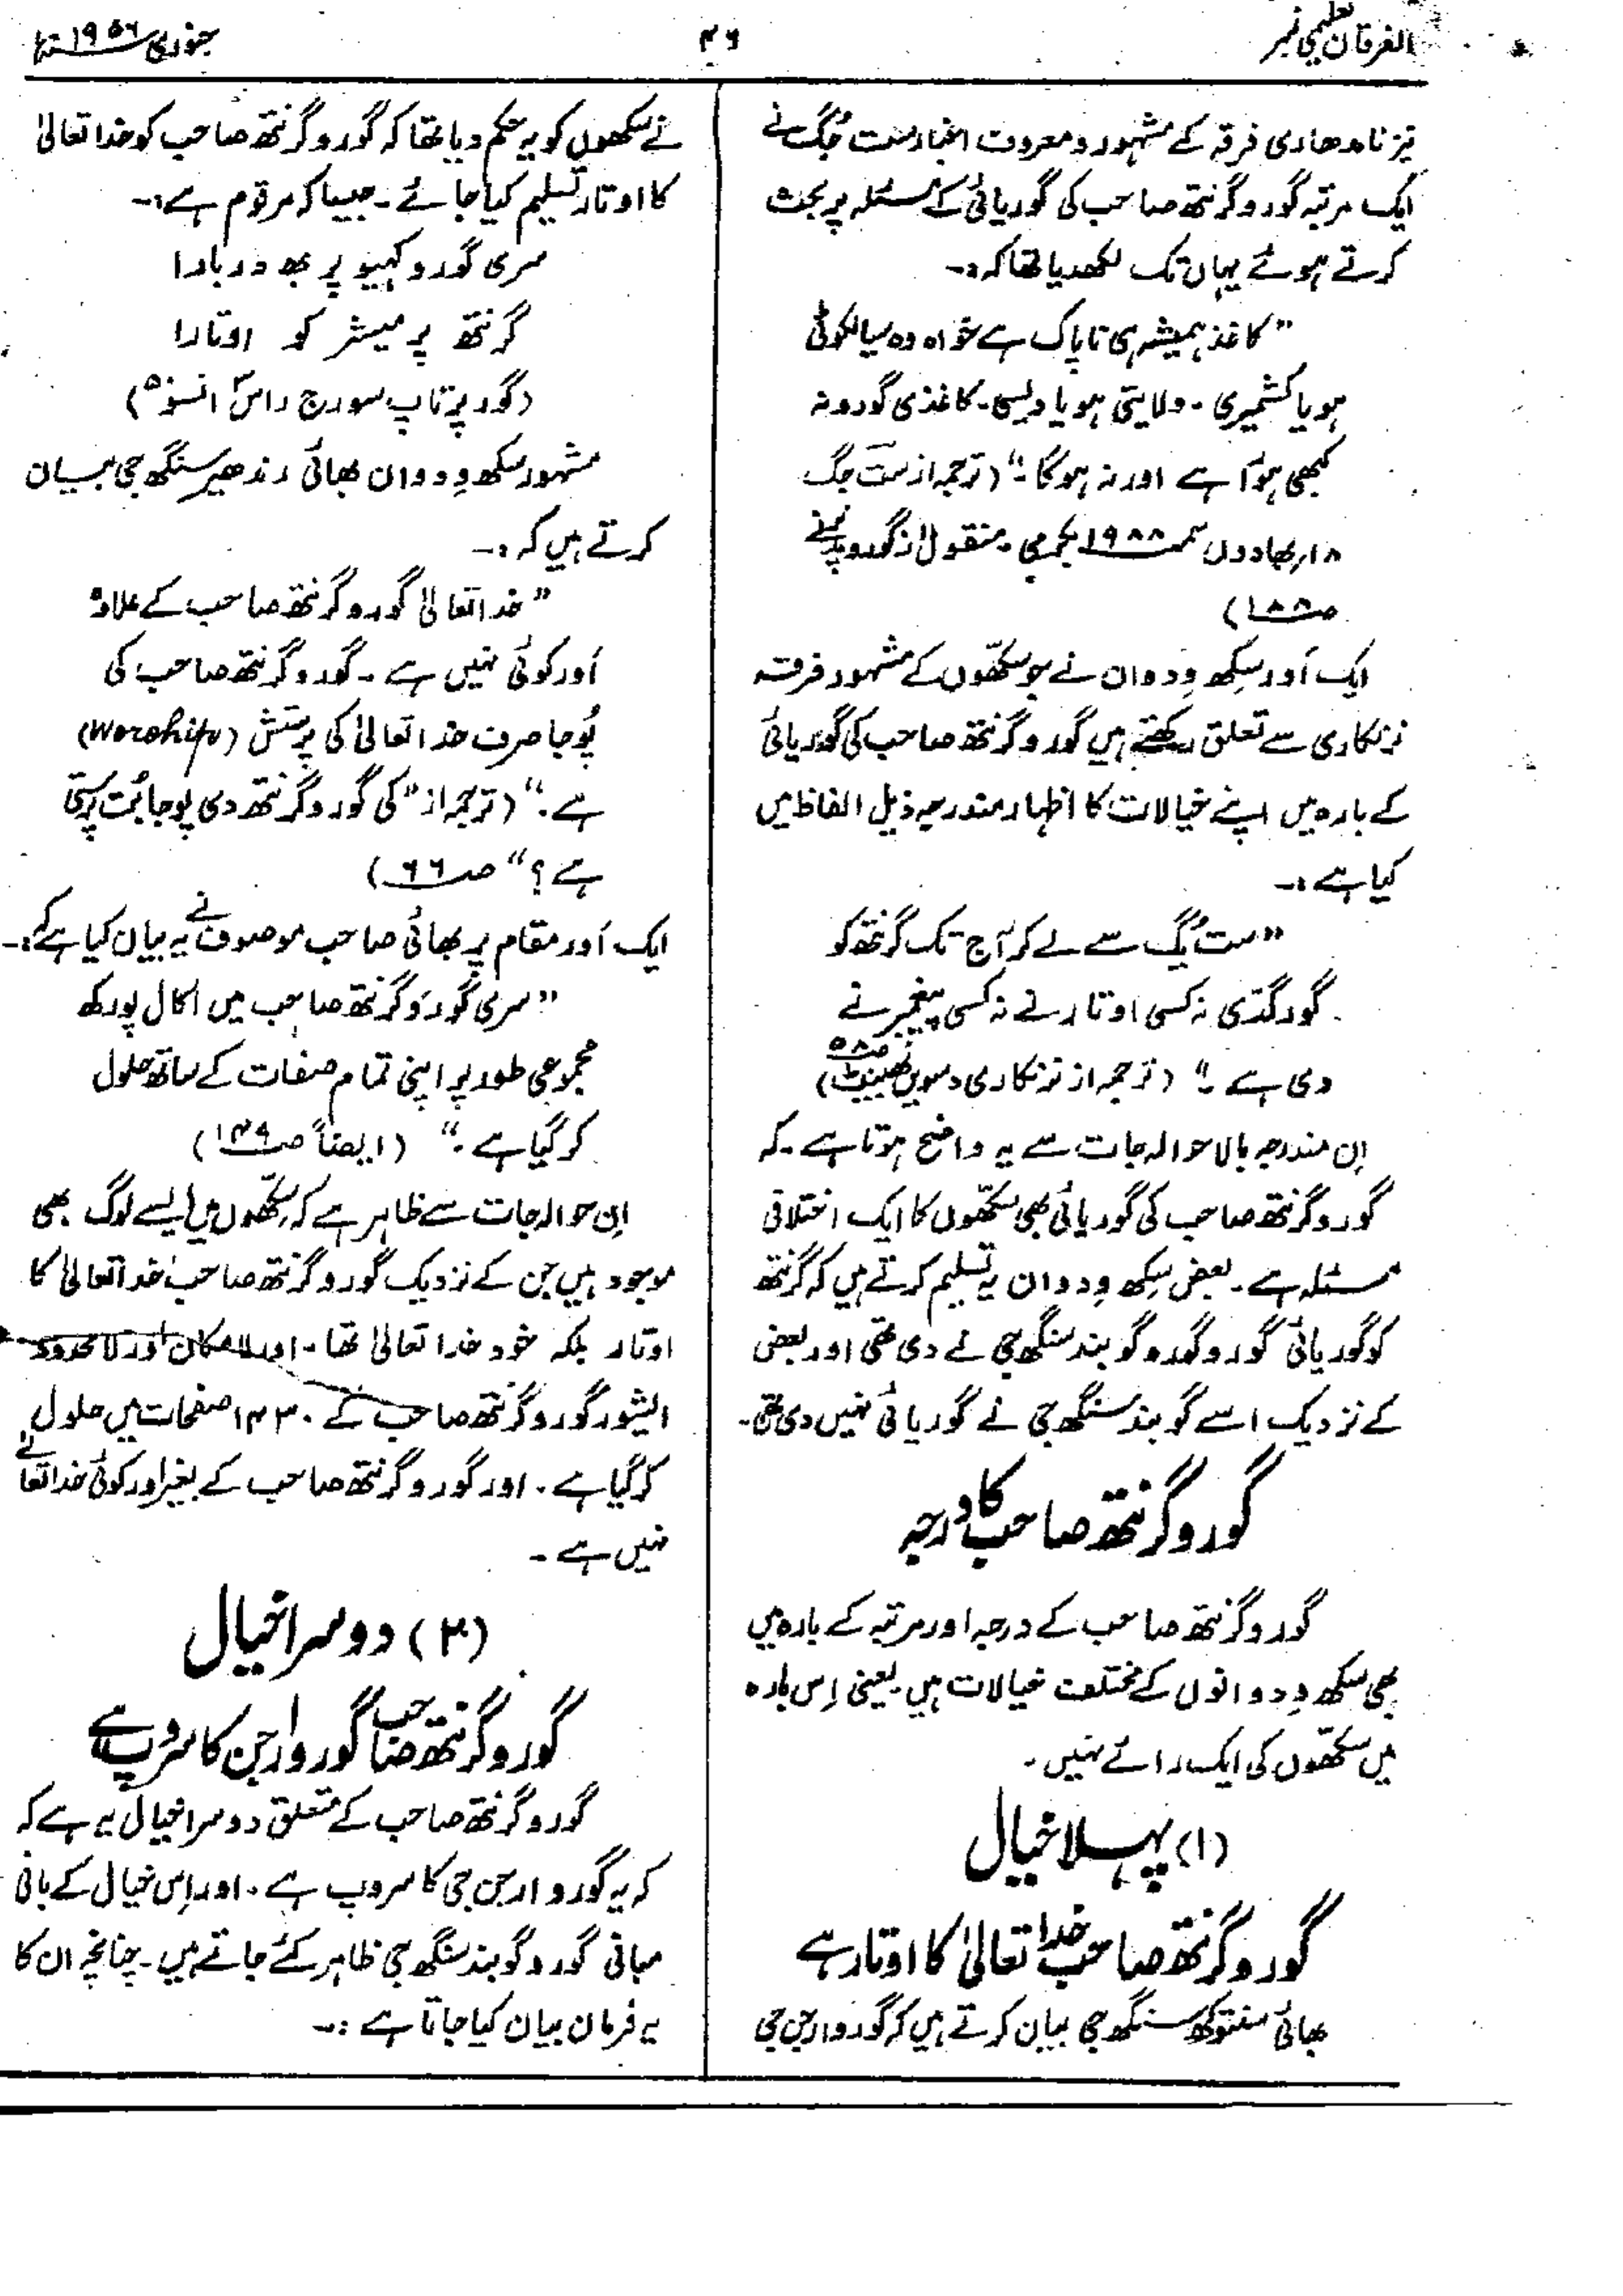 الفرقان تعلیمی نمبر
۴۶
جنوری ۱۹۵۶ء
نیز نامدھاری فرقہ کے مشہور و معروف اخبار ست جگ نے
ایک مرتبہ گوروگرنتھ صاحب کی گوریائی کے مسئلہ پر بحث
کرتے ہوئے یہاں تک لکھدیا تھا کہ :۔
"کاغذ ہمیشہ ہی ناپاک ہے خواہ وہ سیالکوٹی
ہو یا کشمیری ۔ ولایتی ہو یا دیسی ۔ کاغذی گورو نہ
کبھی ہوٓا ہے اور نہ ہوگا ۔" (ترجمہ از ست جگ
۱۸ بھادوں سمت ۱۹۸۸ بکرمی ۔ منقول از گوروپد نرنے
صـ۱۸۸)
ایک اَور سِکھ وِدوان نے جو سکّھوں کے مشہور فرقہ
نرنکاری سے تعلق رکھتے ہیں گوروگرنتھ صاحب کی گوریائی
کے بارہ میں اپنے خیالات کا اظہار مندرجہ ذیل الفاظ میں
کیا ہے :۔
"ست یُگ سے لے کر آج تک گرنتھ کو
گورگدّی نہ کسی اوتار نے نہ کسی پیغمبر نے
دی ہے ۔" (ترجمہ از نرنکاری دسویں بھینٹ صـ۵۸)
اِن مندرجہ بالا حوالہ جات سے یہ واضح ہوتا ہے ۔ کہ
گوروگرنتھ صاحب کی گوریائی بھی سکّھوں کا ایک اختلافی
مسئلہ ہے ۔ بعض سِکھ وِدوان یہ تسلیم کرتے ہیں کہ گرنتھ
کو گوریائی گورو گورو گوبند سنگھ جی نے دی تھی اور بعض
کے نزدیک اسے گوبند سنگھ جی نے گوریائی نہیں دی تھی ۔
گوروگرنتھ صاحب کا درجہ
گوروگرنتھ صاحب کے درجہ اور مرتبہ کے بارہ میں
بھی سکھ وِدوانوں کے مختلف خیالات ہیں یعنی اِس بارہ
میں سکّھوں کی ایک رائے نہیں ۔
(۱) پہلا خیال
گوروگرنتھ صاحب خدا تعالیٰ کا اوتار ہے
بھائی سنتوکھ سنگھ جی بیان کرتے ہیں کہ گورو ارجن جی
نے سکھوں کو یہ حکم دیا تھا کہ گوروگرنتھ صاحب کو خدا تعالیٰ
کا اوتار تسلیم کیا جائے ۔ جیسا کہ مرقوم ہے :۔
سری گورو کہیو پربھ دربارا
گرنتھ پرمیشر کو اوتارا
(گور پرتاپ سورج راس انسو ۵)
مشہور سکھ وِدوان بھائی رندھیر سنگھ جی بیان
کرتے ہیں کہ :۔
"خدا تعالیٰ گوروگرنتھ صاحب کے علاوہ
اَور کوئی نہیں ہے ۔ گوروگرنتھ صاحب کی
پُوجا صرف خدا تعالیٰ کی پرستش (Worship)
ہے ۔" (ترجمہ از "کی گوروگرنتھ دی پوجا بُت پرستی
ہے ؟" صـ۶۶)
ایک اَور مقام پر بھائی صاحب موصوف نے یہ بیان کیا ہے کہ :۔
"سری گوروگرنتھ صاحب میں اکال پورکھ
مجموعی طور پر اپنی تمام صفات کے ساتھ حلول
کر گیا ہے ۔" (ایضاً صـ۱۴۹)
اِن حوالہ جات سے ظاہر ہے کہ سکّھوں میں ایسے لوگ بھی
موجود ہیں جن کے نزدیک گوروگرنتھ صاحب خدا تعالیٰ کا
اوتار بلکہ خود خدا تعالیٰ تھا ۔ اور لامکان اور لامحدود
ایشور گوروگرنتھ صاحب کے ۱۴۳۰ صفحات میں حلول
کر گیا ہے ۔ اور گوروگرنتھ صاحب کے بغیر اور کوئی خدا تعالےٰ
نہیں ہے ۔
(۲) دوسرا خیال
گوروگرنتھ صاحب گورو ارجن کا سروپ ہے
گوروگرنتھ صاحب کے متعلق دوسرا خیال یہ ہے کہ
کہ یہ گورو ارجن جی کا سروپ ہے ۔ اور اِس خیال کے بانی
مبانی گورو گوبند سنگھ جی ظاہر کئے جاتے ہیں ۔ چنانچہ ان کا
یہ فرمان بیان کیا جاتا ہے :۔